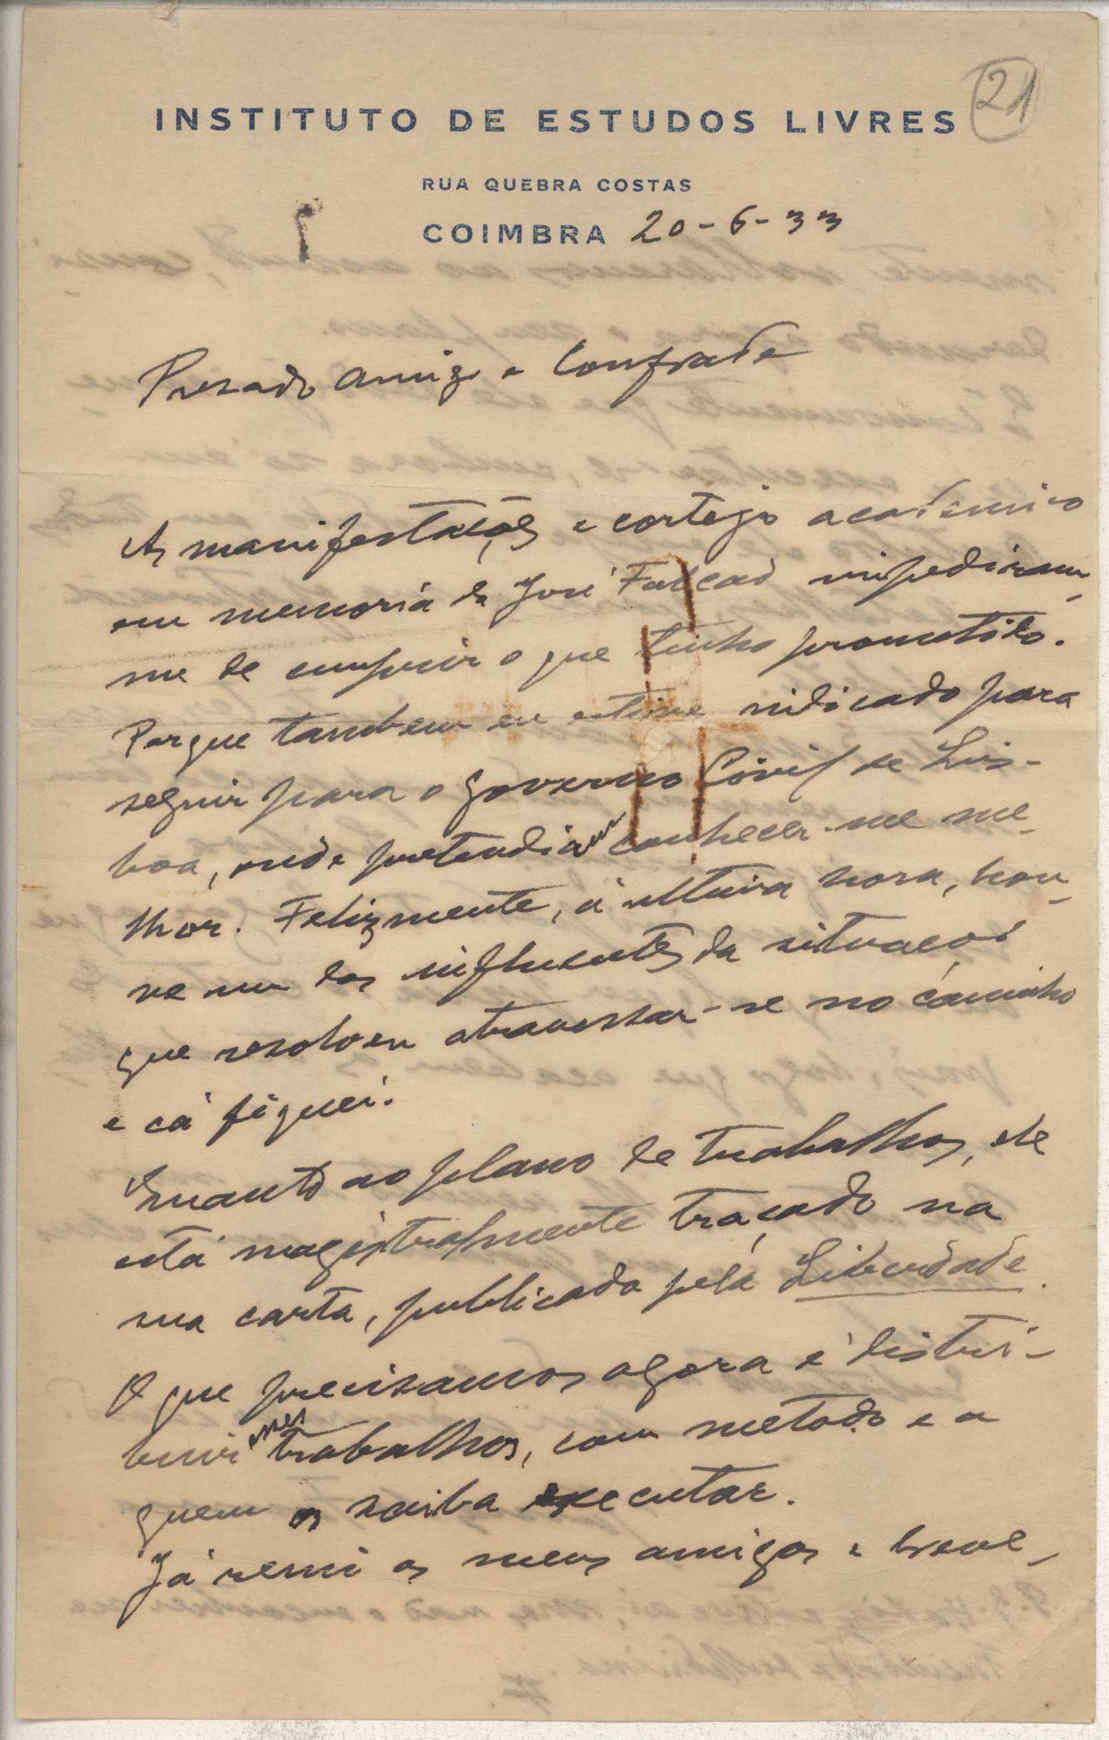 21
INSTITUTO DE ESTUDOS LIVRES
RUA QUEBRA COSTAS
COIMBRA 20-6-33
Presado amigo e Confrade
As manifestações e cortejo academico
em memoria de José Falcão impediram-
me de cumprir o que tinha prometido.
Porque tambem eu estive indicado para
seguir para o Governo Civil de Lis-
boa, onde pretendiam conhecer-me me-
lhor. Felizmente, á ultima hora, hou-
ve um dos influentes da situação
que resolveu atravessar-se no caminho
e cá fiquei.
Quanto ao plano de trabalhos, ele
está magistralmente traçado na
sua carta, publicada pela Liberdade.
O que precisamos agora é distri-
buir esses trabalhos, com metodo e a
quem os saiba executar.
Já reuni os meus amigos e breve-